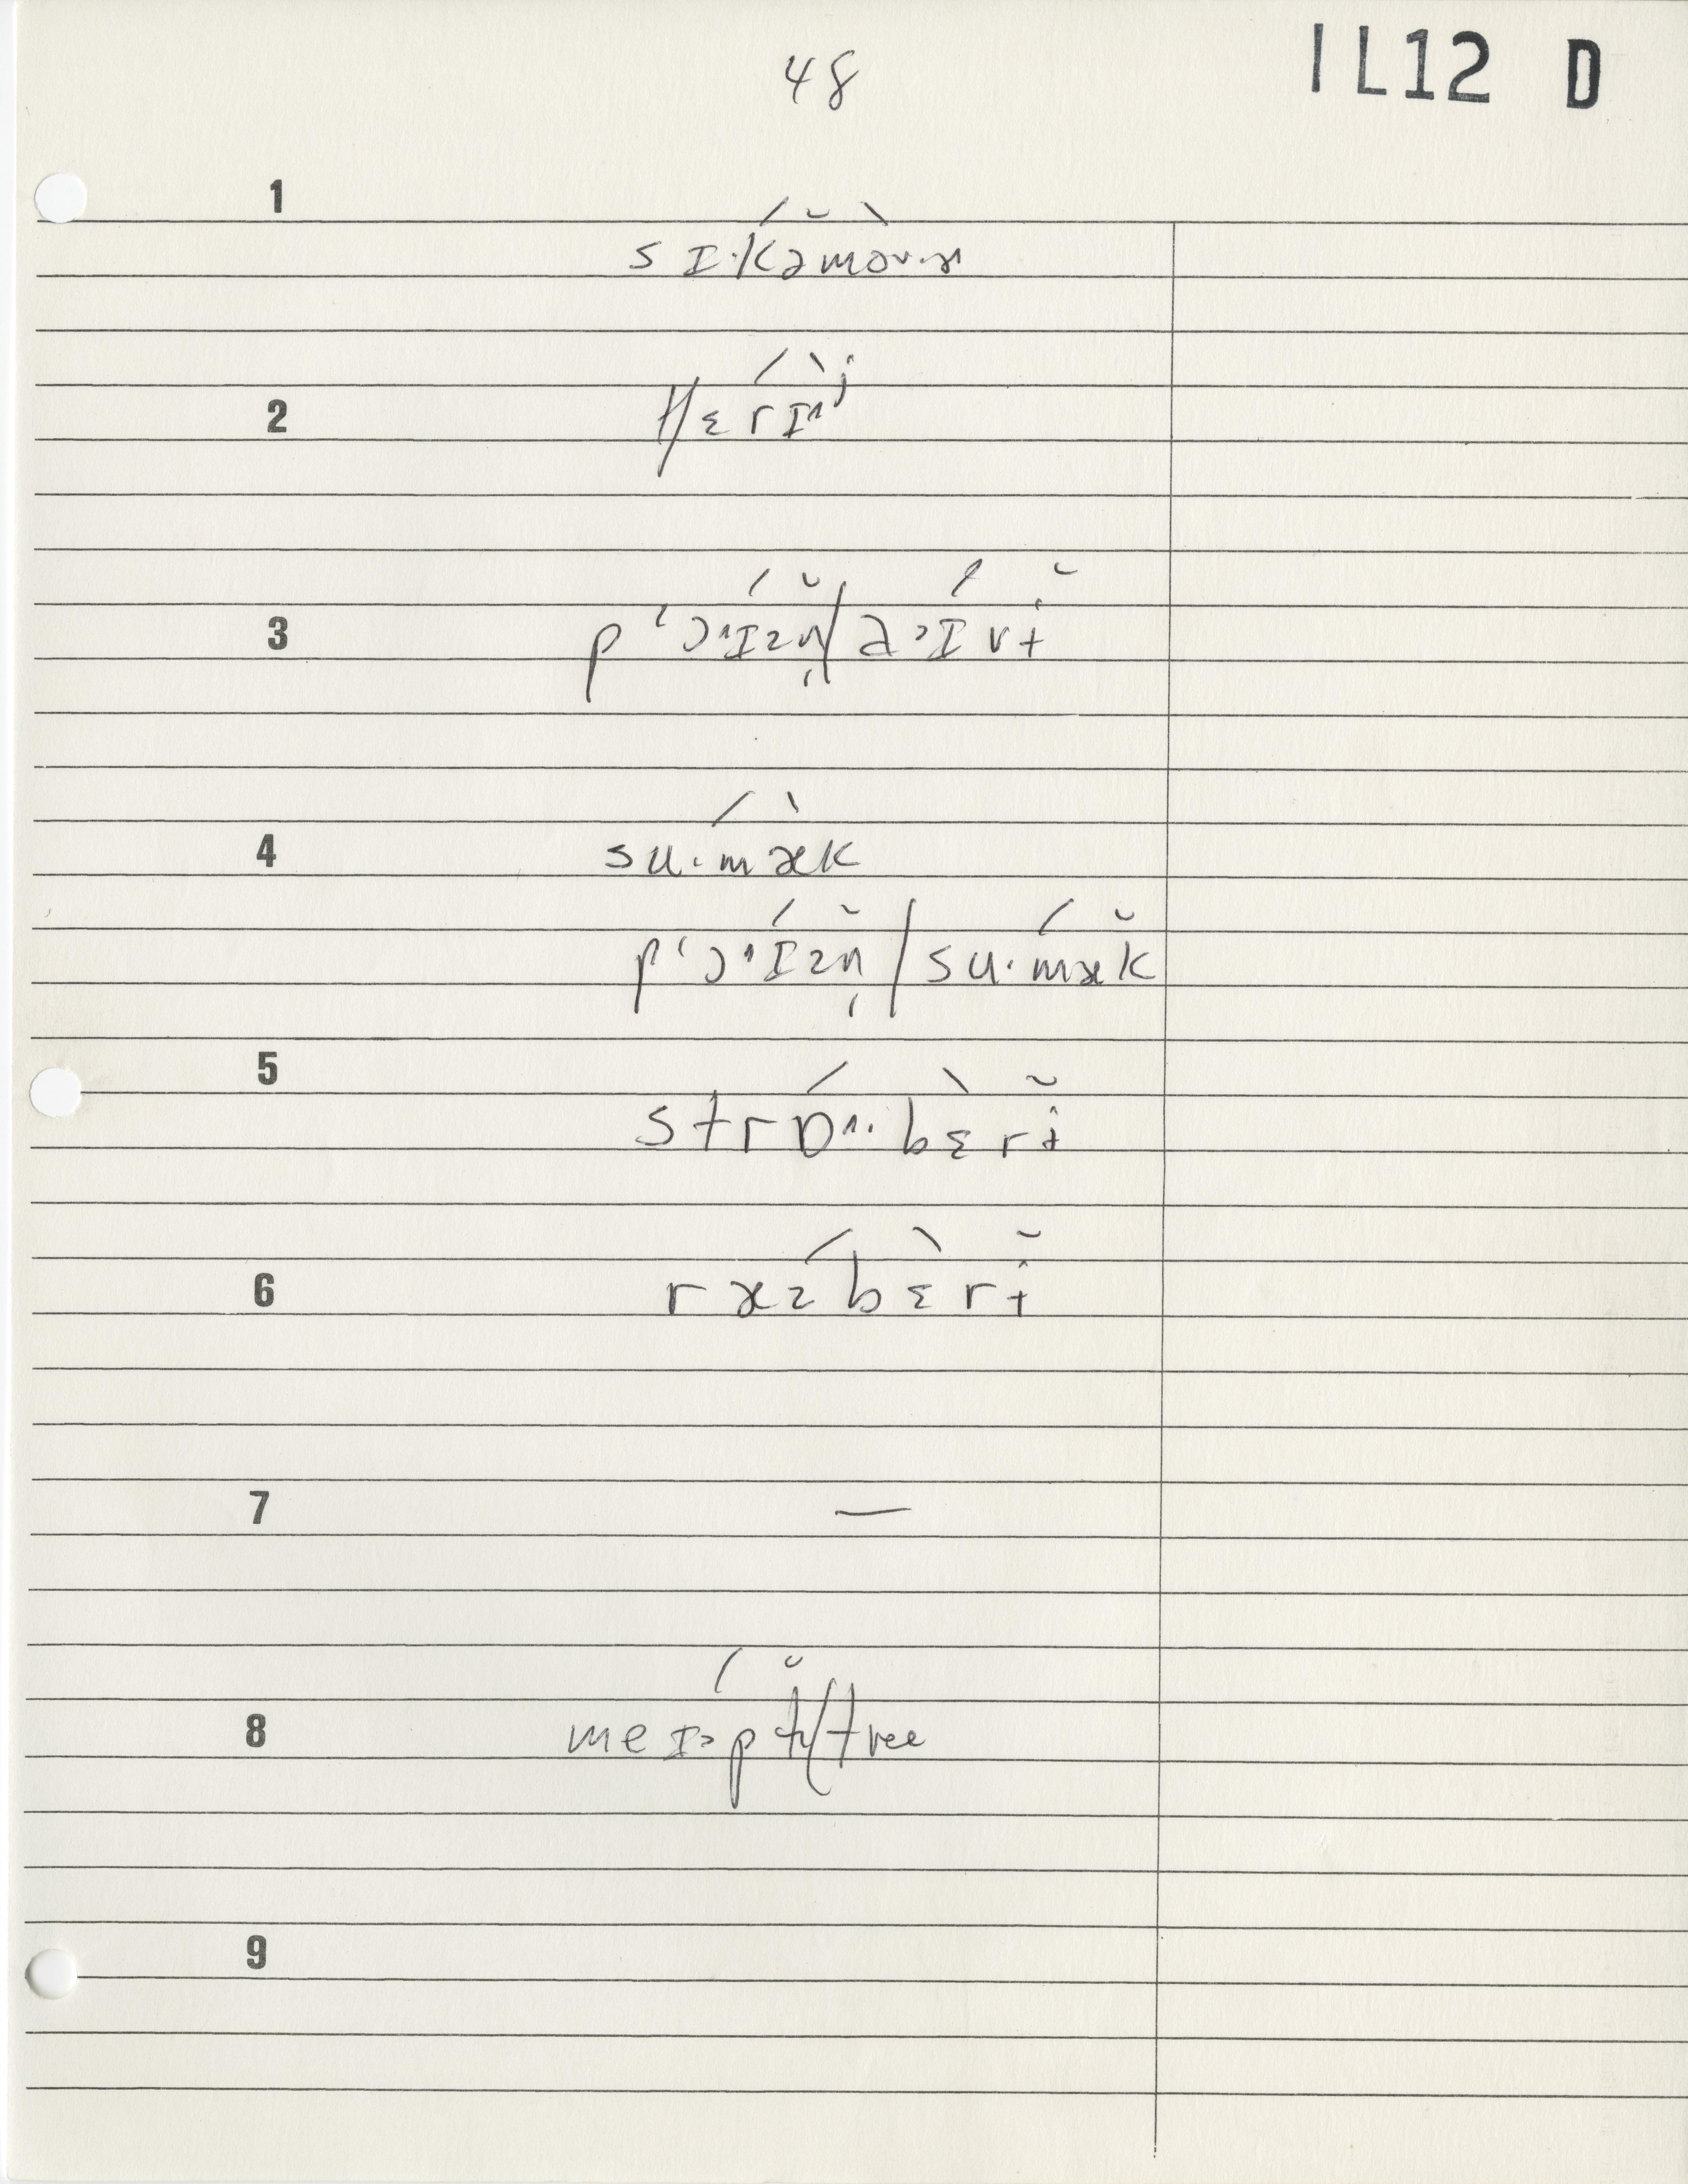 48
IL12 D
1
sɪ·kəmoʊɚ
2
tʃɛrɪ^j
3
pʻɔ^ɪzn̩/aˀɪvɨ
4
su·mæk
pʻɔ^ɪzn̩/su·mæk
5
strɒ^·bɛrɨ
6
ræzbɛrɨ
7
—
8
meɪ˃pɫ̩/tree
9